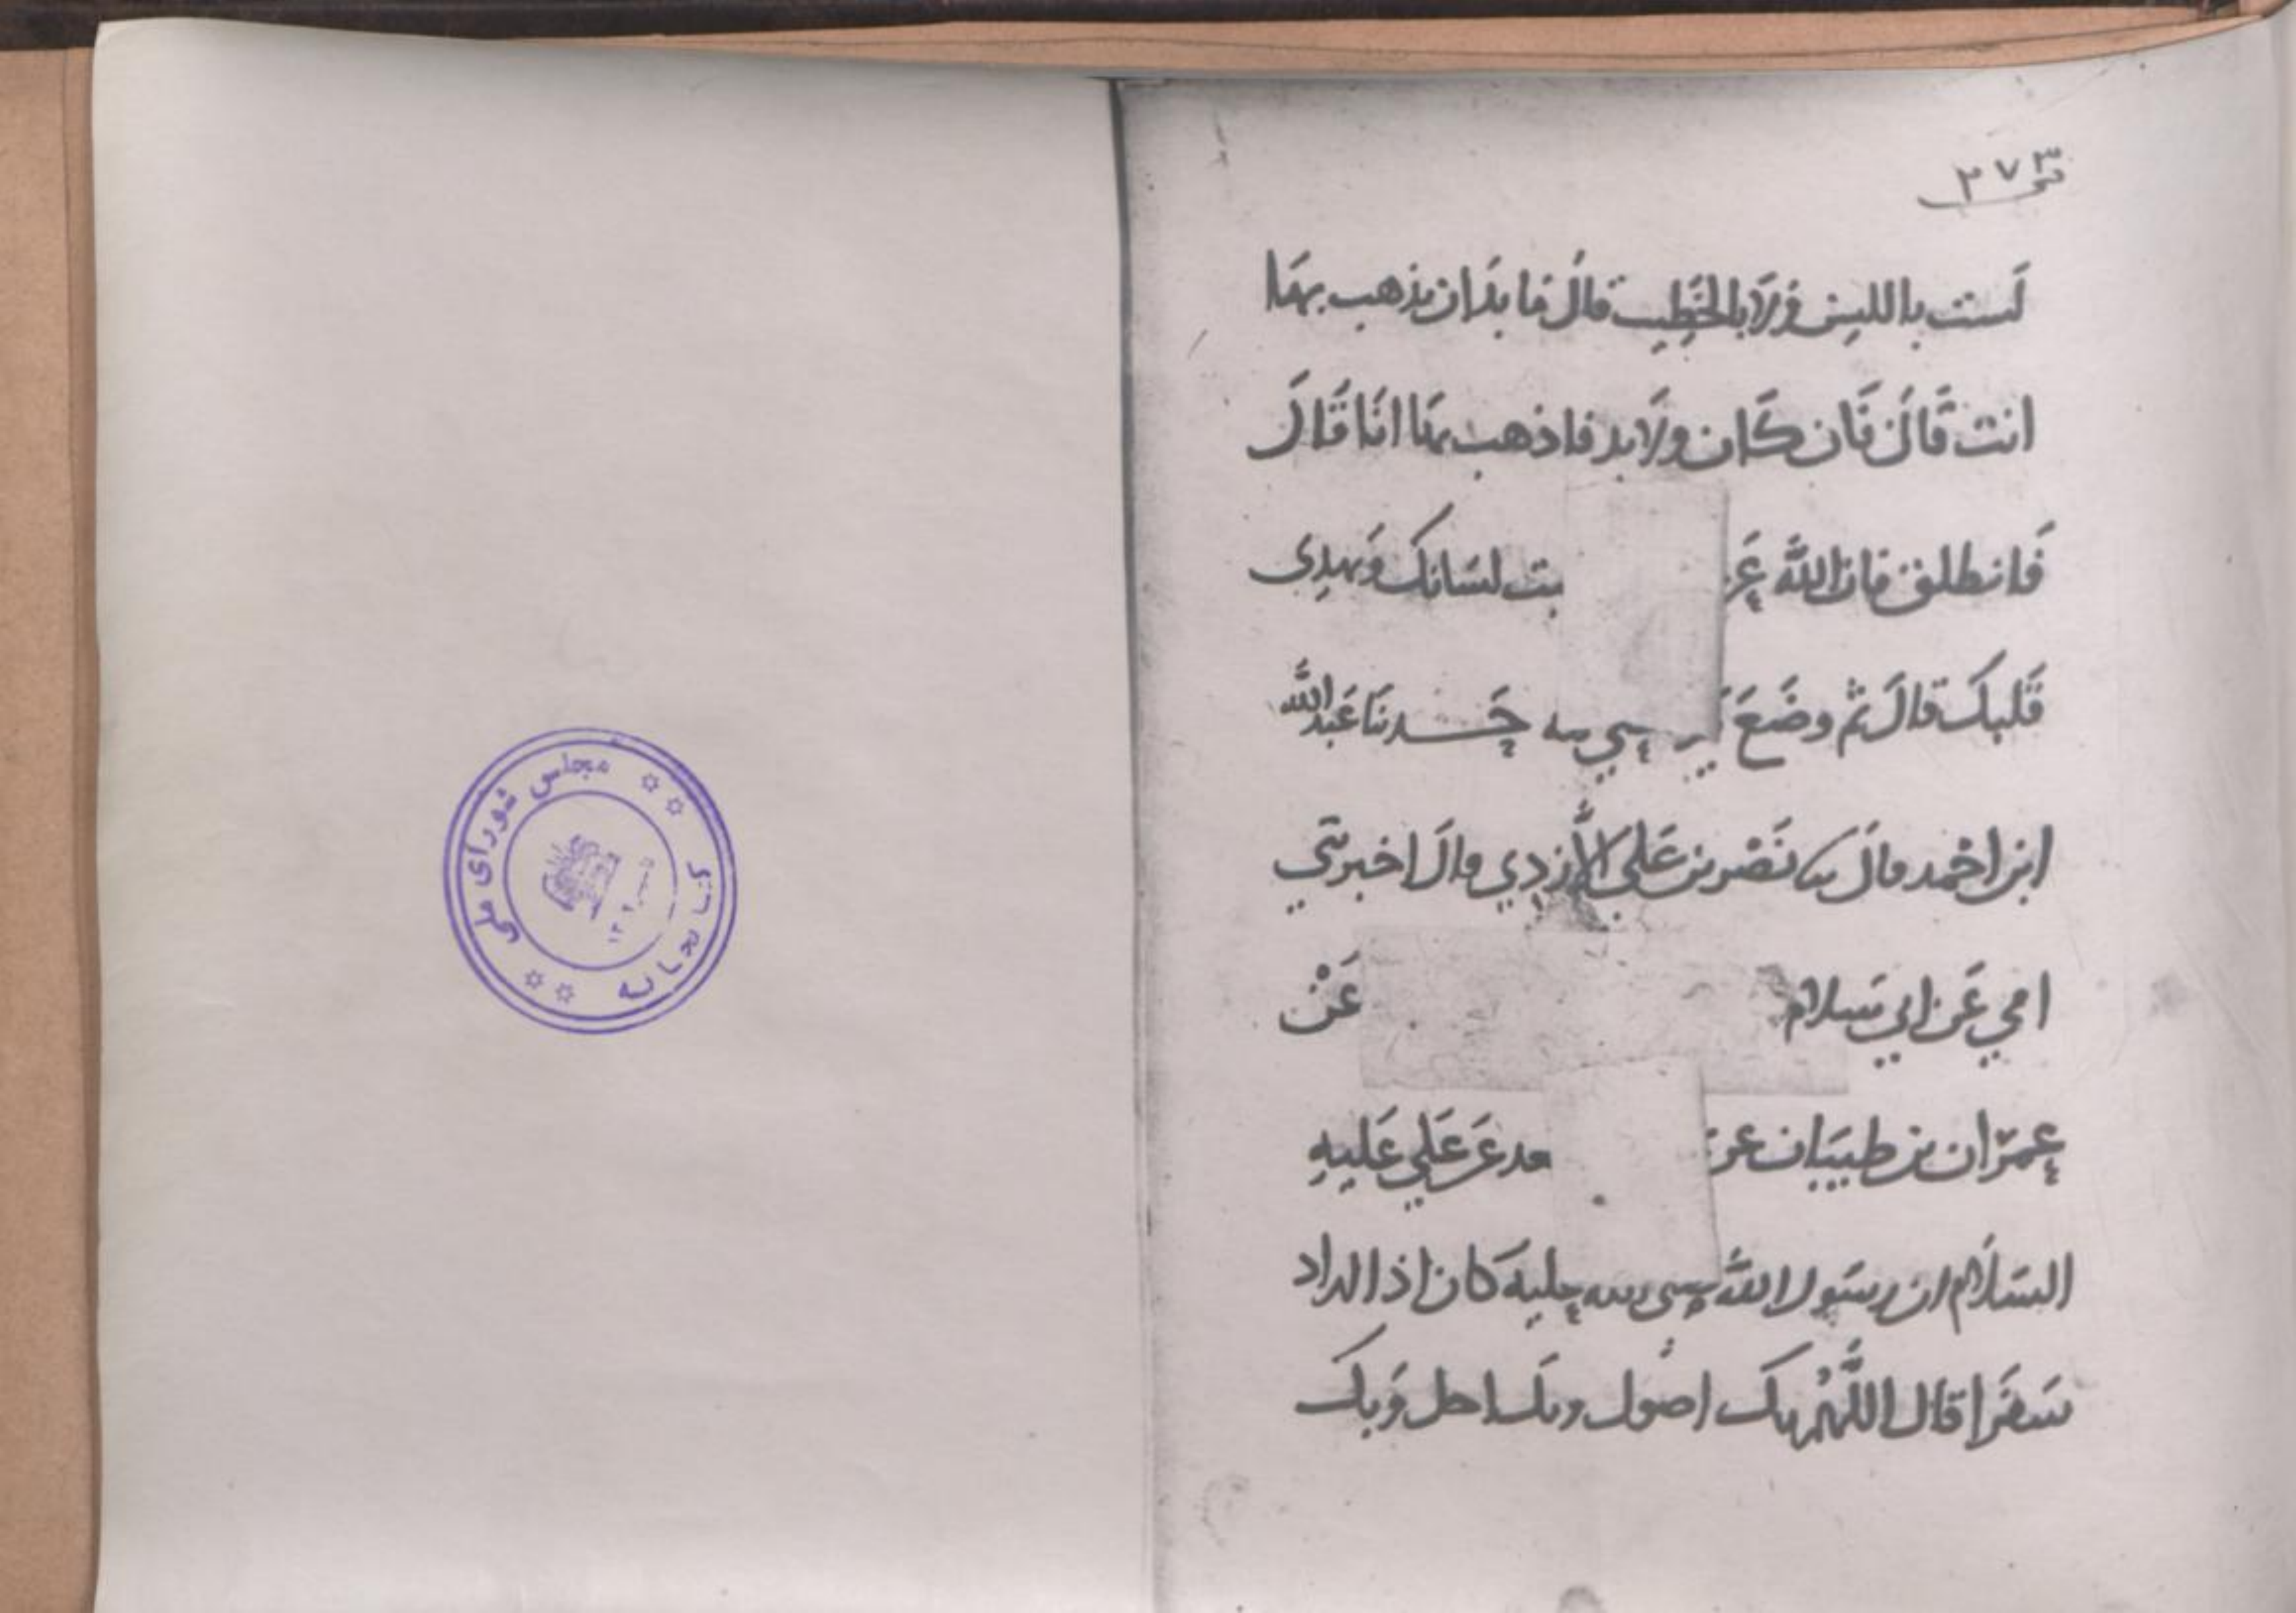 ٢٧٣
لَست باللسِن وَلَا بالخَطِيب قالَ مَا بدَ ان يذهب بهَا
انت قَالَ فَان كَان ولَا بد فاذهب بهَا انَا قَالَ
فَانطلق فان اللّه عَز بت لسَانك وَيهدِى
قَلبكَ قالَ ثم وضَعَ حَدثنَا عَبد اللّه
ابن احْمد قالَ نا نَصْر بن عَلي الأزدِي قالَ اخبرتني
امي عَن ابي سَلام عَنْ
عِمرَان بن ظبيَان عن عَن عَلي عَليهِ
السَلام ان رسَول اللّه صلى الله عليه كان اذا اراد
سَفَرا قال اللَّهُم بك اصُول وبك احل وَبك
مجلس شورای ملی
کتابخانه